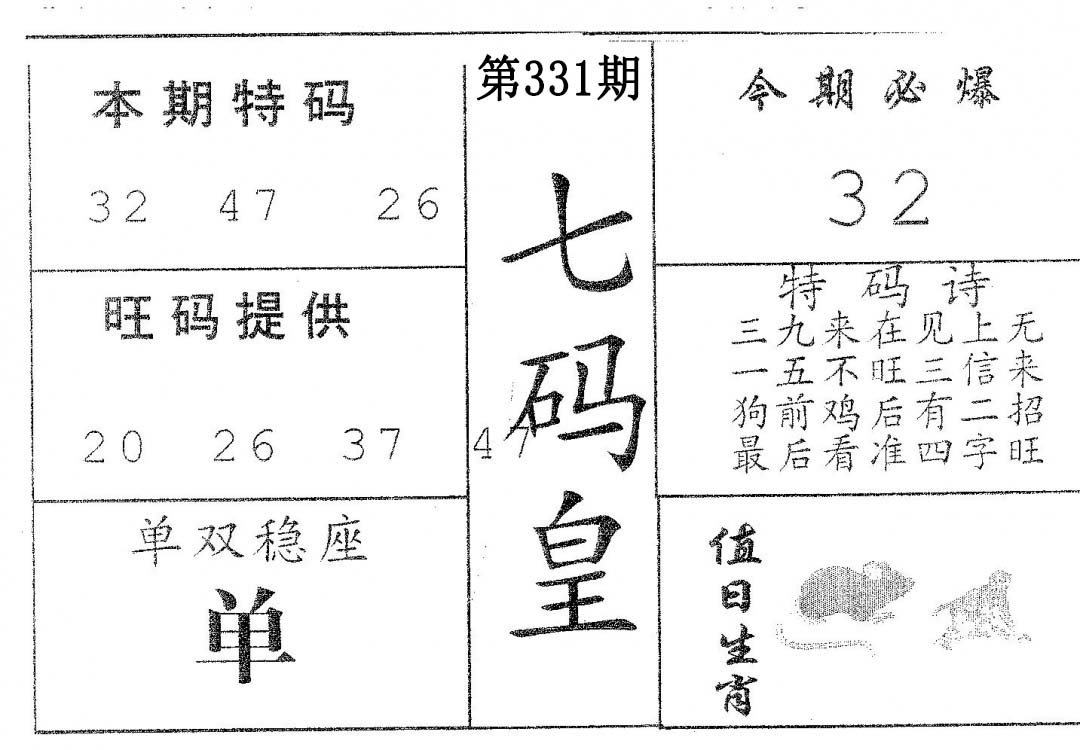 第331期
七码皇
本期特码
32 47 26
旺码提供
20 26 37 47
单双稳座
单
今期必爆
32
特码诗
三九来在见上无
一五不旺三信来
狗前鸡后有二招
最后看准四字旺
值日生肖